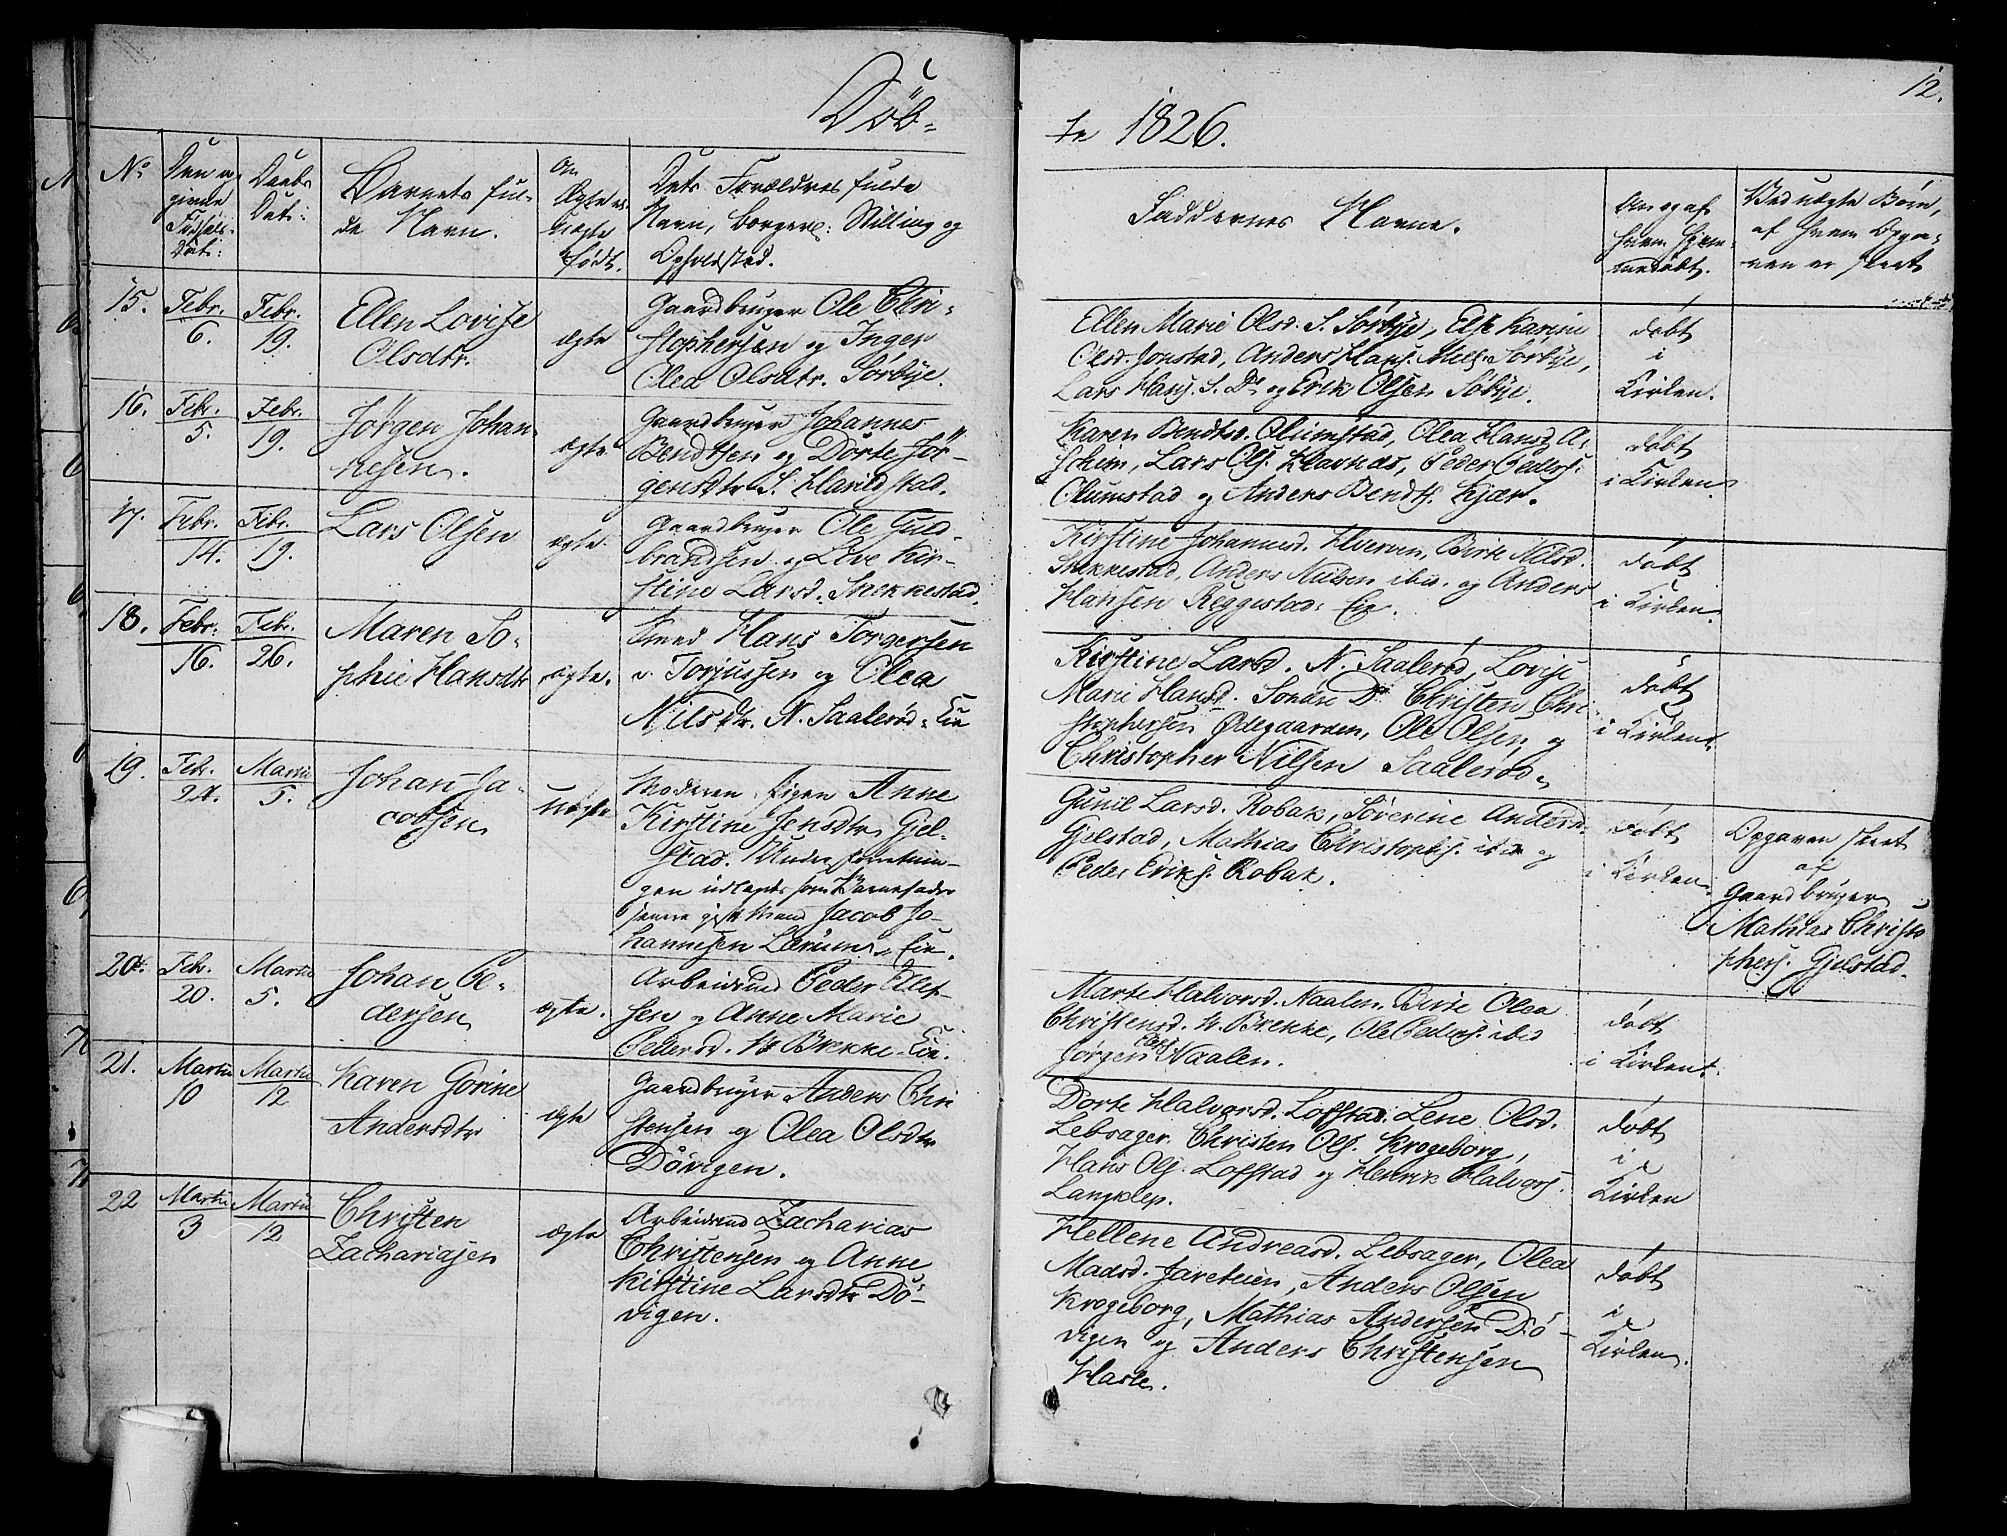 Döb-
te 1826.
12.
No
Den an
givne
Fødsels
Dato:
Daabs
Dato:
Barnets ful-
de Navn.
om
Ægte el.
uægte
født.
Dets Forældres fulde
Navn, borgerl: Stilling og
Opholdsted.
Faddernes Navne.
Om og af
hvem hjem-
medøbt.
Ved uægte Børn,
af hvem Opga-
ven er skeet
15.
Febr.
6.
Febr.
19.
Ellen Lovise
Olsdtr.
ægte
Gaardbruger Ole Chri-
stophersen og Inger
Olea Olsdtr. Sørbye.
Ellen Marie Olsd. S. Sørbye, Else Karine
Olsd. Jonstad, Anders Hans. Mell. Sørbye,
Lars Hans. S. Do og Erik Olsen Søbye.
døbt
i
Kirken.
16.
Febr.
5.
Febr.
19.
Jørgen Johan-
nesen.
ægte
Gaardbruger Johannes
Bendtsen og Dorte Jör-
gensdtr S. Havnstad.
Karen Bendtsd. Olumstad, Olea Hansd. A-
scheim, Lars Ols. Havnaas, Peder Peders:
Olumstad og Anders Bendts. Kjær.
døbt
i Kirken.
17.
Febr.
14.
Febr.
19.
Lars Olsen
ægte.
Gaardbruger Ole Guld-
brandsen og Live Kir-
stine Larsd. Shekkestad.
Kirstine Johannesd. Hverven, Birte Nilsd.
Shekkestad, Anders Nielsen ibid. og Anders
Hansen Reggestad: Eie.
døbt
i Kirken.
18.
Febr.
16.
Febr.
26.
Maren So-
phie Hansdtr
ægte.
Smed Hans Torgersen
v. Torjussen og Olea
Nilsdtr. N. Saalerød: Eie
Kirstine Larsd. N. Saalerød, Lovise
Marie Hansd. Søndre Do Christen Chri-
stophersen Ødegaarden, Ole Olsen og
Christopher Nilsen Saalerød.
døbt
i Kirken.
19.
Febr.
24.
Martii
5.
Johan Ja-
cobsen
uægte
Moderen: Pigen Anne
Kirstine Jensdtr Gjel-
stad. Under
gen udlagt som Barnefader
gift Mand Jacob Jo-
hannesen Lerum: Eie.
Gunil Larsd. Robak, Søverine Andersd.
Gjelstad, Mathias Christophs. ibid og
Peder Eriks. Robak.
døbt
i Kirken.
Opgaven skeet
af
Gaardbruger
Mathias Christo
phers. Gjelstad.
20.
Febr.
20.
Martii
5.
Johan Pe-
dersen
ægte.
Arbeidsmd Peder Ellef-
sen og Anne Marie
Pedersd. N. Brekke: Eie.
Marte Halvorsd. Naalen. Birte Olea
Christensd. N. Brekke, Ole Peders. ibid
Jørgen Naalen.
døbt
i Kirken.
21.
Martii
10
Martii
12
Karen Gorine
Andersdtr
ægte
Gaardbruger Anders Chri
stensen og Olea Olsdtr
Dövigen.
Dorte Halvorsd. Loffstad. Lene Olsd.
Lebsager. Christen Ols. Krogeborg,
Hans Ols. Loffstad og Henrik Halvors.
Langklep.
døbt
i
Kirken
22
Martii
3
Martii
12
Christen
Zachariasen
ægte
Arbeidsmd Zacharias
Christensen og Anne
Kirstine Larsdtr Dö-
vigen.
Hellene Andreasd. Lebsager, Olea
Madsd. Jareteien, Anders Olsen
Krogeborg, Mathias Andersen Dö-
vigen og Anders Christensen
Hasle.
døbt
i
Kirken.